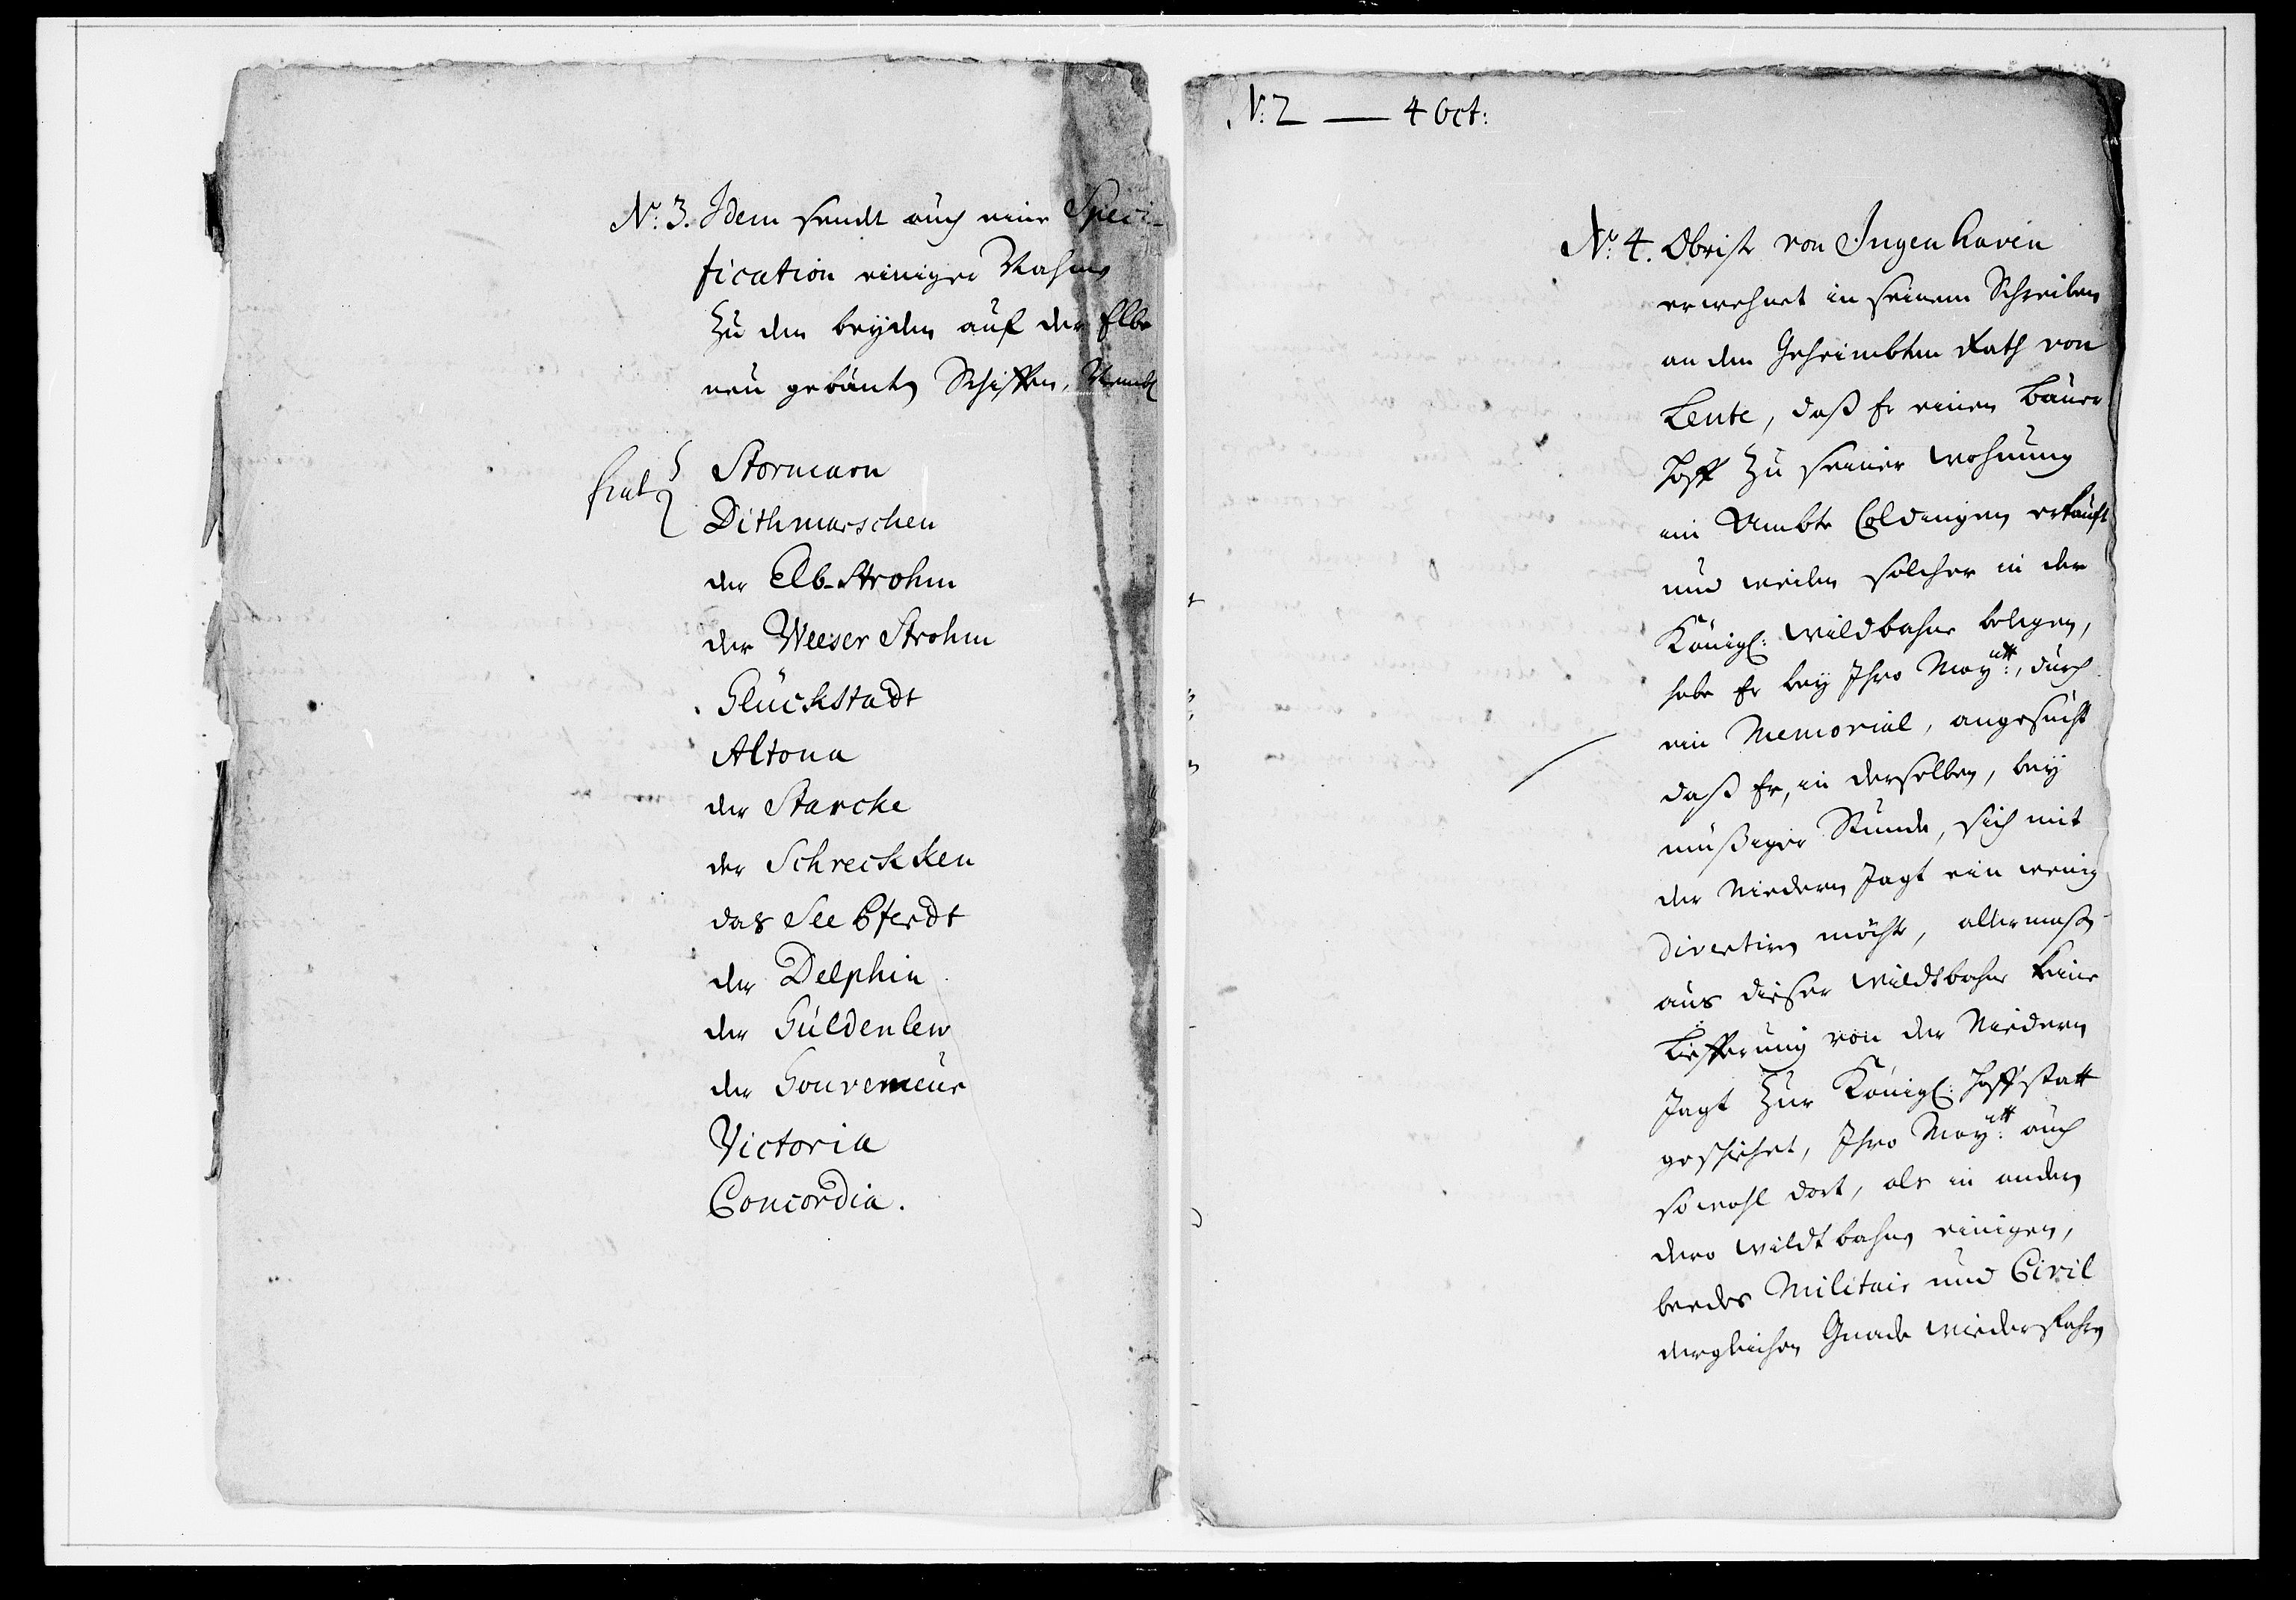 No: 3. Idem sendt auch eine Speci-
fication einiger Nahmen
zu den beyden auf der Elbe
neu gebäute Schiffen, Neml:
fiat
Stormarn
Dithmarschen
der Elb-Strohm
der Weeser Strohm
Glückstadt
Altona
der Starcke
der Schreckken
das See Pferdt
der Delphin
der Güldenlew
der Gouverneur
Victoria
Concordia.
N: 2 — 4 Oct:
No: 4. Obrist von Ingenhaven
erwehnet in seinem Schreiben
an den Geheimbten Rath von
Lente, daß Er einen Bauer
Hoff zu seiner Wohnung
im Ambte Coldingen erkaufft
und weilen solcher in der
Königl: Wildbahne belegen,
habe Er bey Ihro Maytt:, durch
ein Memorial, angesucht
daß Er, in derselben, bey
müßiger Stunde, sich mit
der Niedern Jagt ein wenig
divertiren möchte, allermaßen
aus dieser Wildtbahne keine
Liefferung von der Niedern
Jagt zur Königl: Hoffstatt
geschiehet, Ihro Maytt: auch
so wohl dort, als in andern
dero Wildtbahnen einigen,
beedes Militair und Civil
dergleichen Gnade wiederfahren